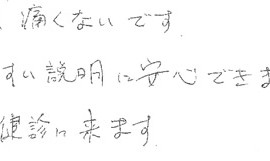 痛くないです
すい説明に安心できま
健診に来ます